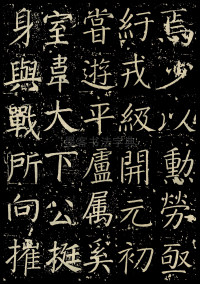 焉少以動勞亟
紆戎級開元初
嘗遊平盧属奚
室韋大下公挺
身與戰所向摧